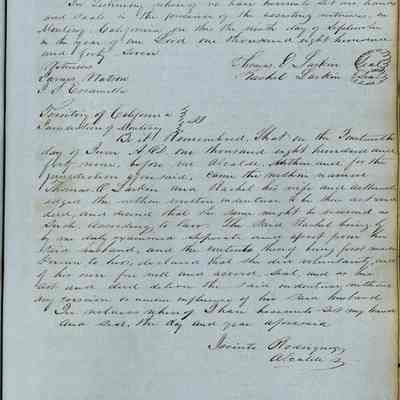 In Testimony whereof we have hereunto set our hands
and seals in the presence of the assisting witnesses, in
Monterey California, on this the ninth day of September
in the year of our Lord one thousand eight hundred
and forty seven
Witnesses Thomas O. Larkin Seal
James Watson Rachel Larkin Seal
Territory of California
Jurisdiction of Monterey SS
Be it Remembered, That on the
day of June A.D. one thousand eight hundred and
forty nine, before me Alcalde within and for the
jurisdiction aforesaid, came the within named
Thomas O. Larkin and Rachel his wife and acknowl
edged the within written indenture to be their act and
deed, and desired that the same might be recorded as
Such according to law. The said Rachel being
by me duly examined Separate and apart from the
said husband, and the contents thereof being first made
known to her, declared that she did voluntarily, and
of her own free will and accord, seal, and as her
act and deed deliver the said indenture without
any coercion or undue influence of her said husband
In witness whereof I have hereunto set my hand
and seal, the day and year aforesaid
Jacinto Rodriguez
Alcalde